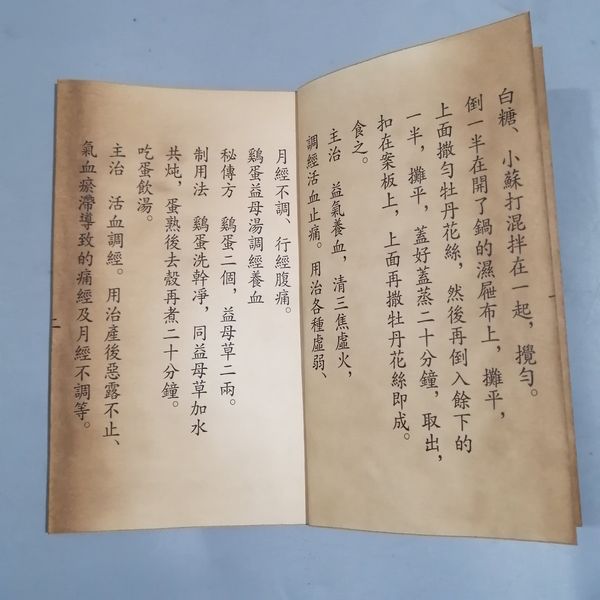 白糖、小蘇打混拌在一起，攪勻。
倒一半在開了鍋的濕屜布上，攤平，
上面撒勻牡丹花絲，然後再倒入餘下的
一半，攤平，蓋好蓋蒸二十分鐘，取出，
扣在案板上，上面再撒牡丹花絲即成。
食之。
主治　益氣養血，清三焦虛火，
調經活血止痛。用治各種虛弱、
月經不調、行經腹痛。
鷄蛋益母湯調經養血
秘傳方　鷄蛋二個，益母草二兩。
制用法　鷄蛋洗幹凈，同益母草加水
共炖，蛋熟後去殼再煮二十分鐘。
吃蛋飲湯。
主治　活血調經。用治產後惡露不止、
氣血瘀滯導致的痛經及月經不調等。